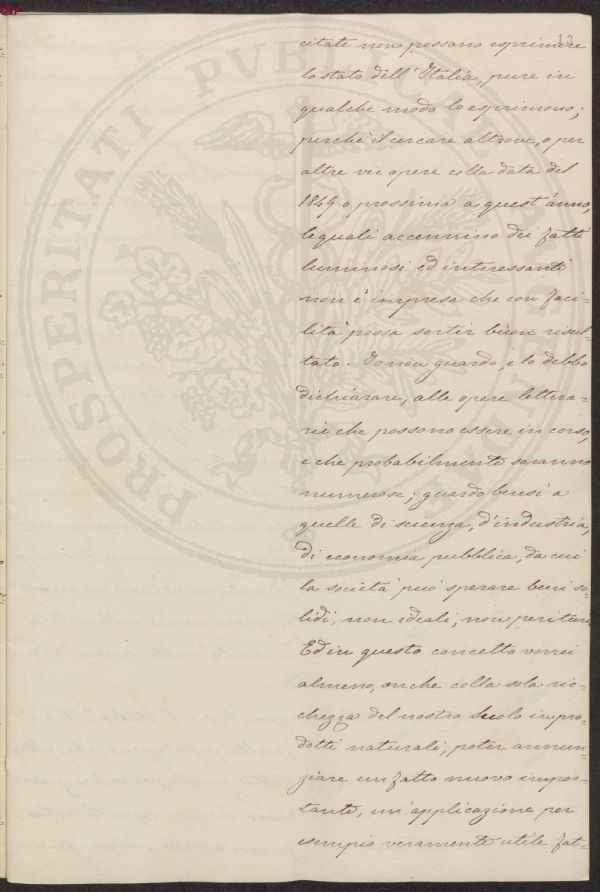 13
citate non possano esprimere
lo stato dell'Italia, pure in
qualche modo lo esprimono;
perchè il cercare altrove, o per
altre vie opere colla data del
1849 o prossima a quest'anno,
le quali accennino dei fatti
luminosi ed interessanti
non è impresa che con faci=
lità possa sortir buon risul=
tato. Io non guardo, e lo debbo
dichiarare, alle opere lettera=
rie che possono essere in corso,
e che probabilmente saranno
numerose; guardo bensì a
quelle di scienza, d'industria,
di economia pubblica, da cui
la società può sperare beni so=
lidi, non ideali, non perituri
Ed in questo concetto vorrei
almeno, anche colla sola ric=
chezza del nostro Suolo in pro=
dotti naturali, poter annun=
ziare un fatto nuovo impor=
tante, un'applicazione per
esempio veramente utile fat=
PROSPERITATI PVBLICAE AVGENDAE